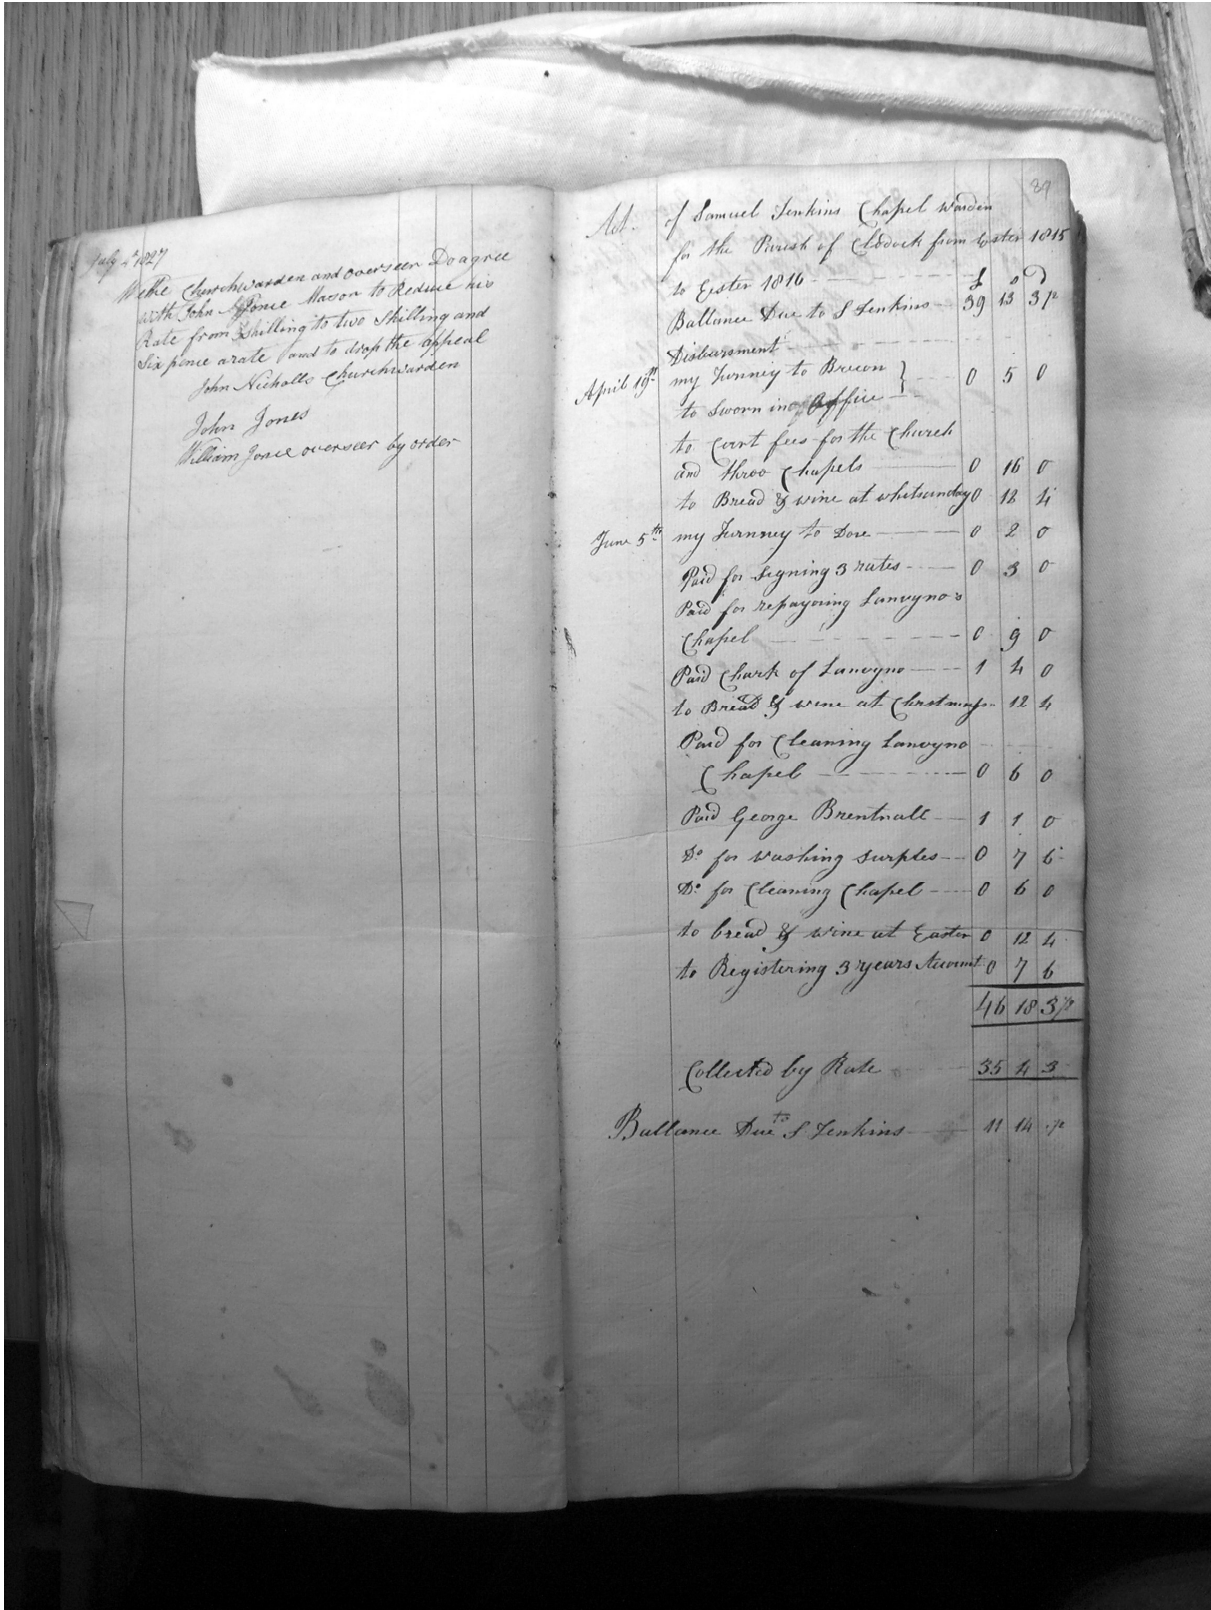 July 4th 1827
We the Churchwarden and overseer Do agree
with John Jone Mason to Reduse his
Rate from 3 shilling to two Shilling and
Six pence a rate and to drop the appeal
John Nicholls Churchwarden
John Jones
William Jone overseer by order
89
Act. of Samuel Jenkins Chapel Warden
for the Parish of Clodock from Ester 1815
to Ester 1816 £ s D
Ballance Due to S Jenkins 39 13 3½
Disbursment
April 19th my Jurnney to Brecon
to Sworn in office 0 5 0
to Court fees for the Church
and throo Chapels 0 16 0
to Bread & wine at whitsunday 0 12 4
June 5th my Jurnney to Dore 0 2 0
Paid for Segning 3 rates 0 3 0
Paid for repayoring Lanvyno's
Chapel 0 9 0
Paid Chark of Lanvyno 1 4 0
to Bread & wine at Chrstmass 12 4
Paid for Cleaning Lanvyno
Chapel 0 6 0
Paid George Brentnall 1 1 0
Do for washing Surples 0 7 6
Do for Cleaning Chapel 0 6 0
to bread & wine at Easter 0 12 4
to Registering 3 years Account 0 7 6
46 18 3½
Collected by Rate 35 4 3
Ballance Due to S Jenkins 11 14 ½